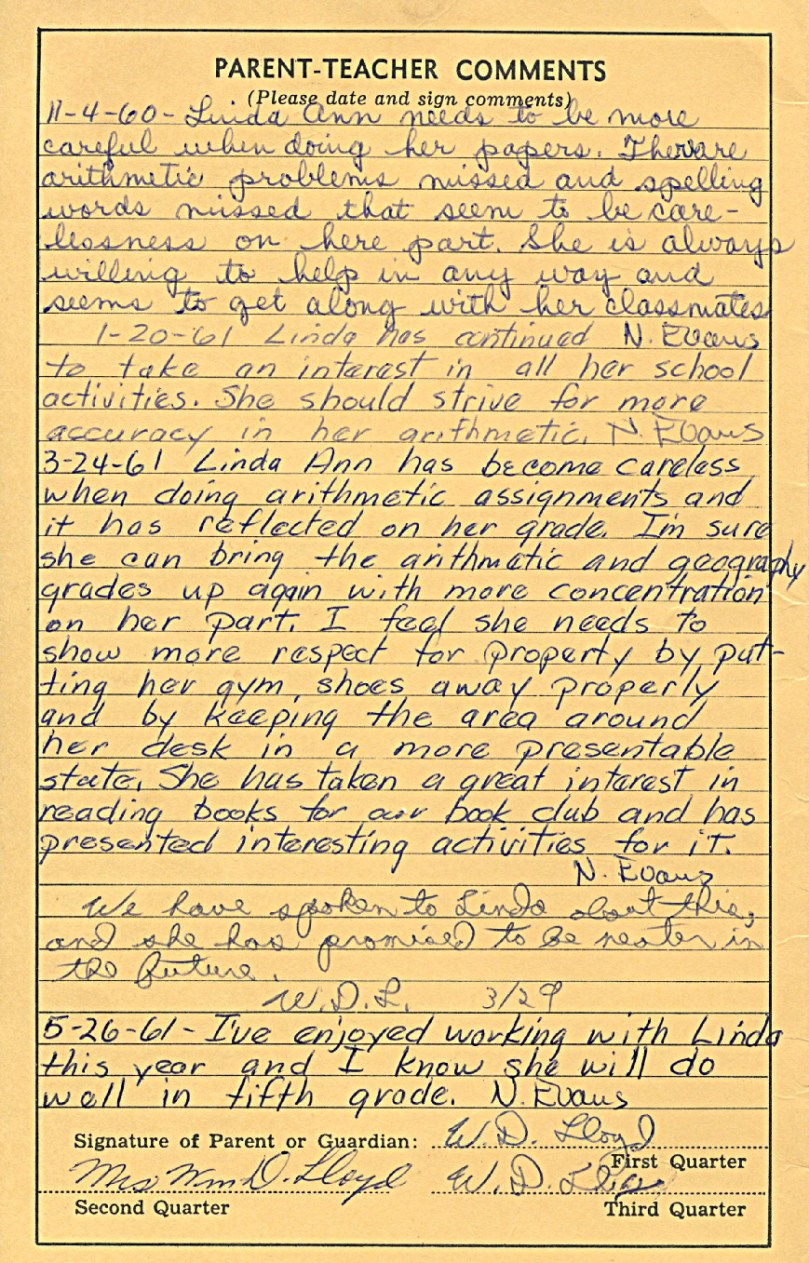 PARENT-TEACHER COMMENTS
(Please date and sign comments)
11-4-60- Linda Ann needs to be more
careful when doing her papers. There are
arithmetic problems missed and spelling
words missed that seem to be care-
lessness on here part. She is always
willing to help in any way and
seems to get along with her classmates.
N. Evans
1-20-61 Linda has continued
to take an interest in all her school
activities. She should strive for more
accuracy in her arithmetic. N. Evans
3-24-61 Linda Ann has become careless
when doing arithmetic assignments and
it has reflected on her grade. I'm sure
she can bring the arithmetic and geography
grades up again with more concentration
on her part. I feel she needs to
show more respect for property by put-
ting her gym shoes away properly
and by keeping the area around
her desk in a more presentable
state. She has taken a great interest in
reading books for our book club and has
presented interesting activities for it.
N. Evans
We have spoken to Linda about this,
and she has promised to be neater in
the future.
W.D.L. 3/29
5-26-61- I've enjoyed working with Linda
this year and I know she will do
well in fifth grade. N. Evans
Signature of Parent or Guardian: W.D. Lloyd
First Quarter
Mrs Wm D. Lloyd W.D. Lloyd
Second Quarter Third Quarter